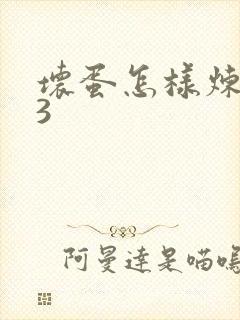 壞蛋怎樣煉
3
阿曼達是喵嗚